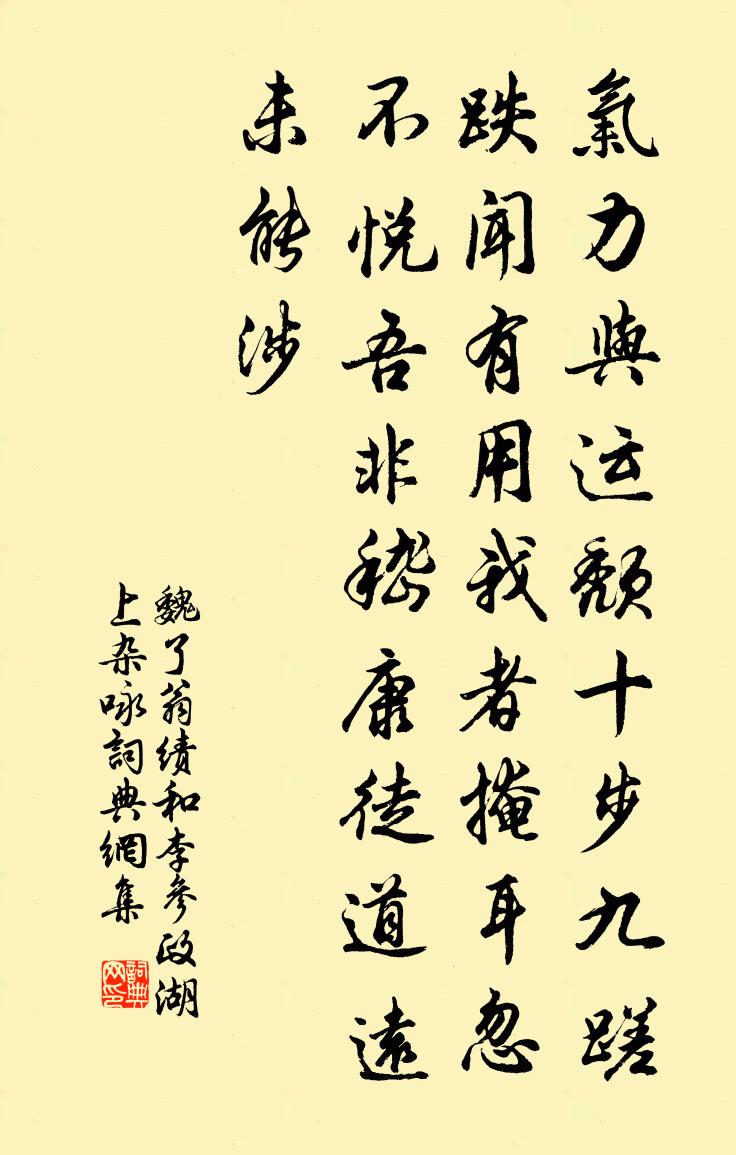 氣力與运颓十步九蹉
跌闻有用我者掩耳忽
不悦吾非嵇康徒道遠
未能涉
魏了翁績和李參政湖
上杂咏詞典網集
詞典网印